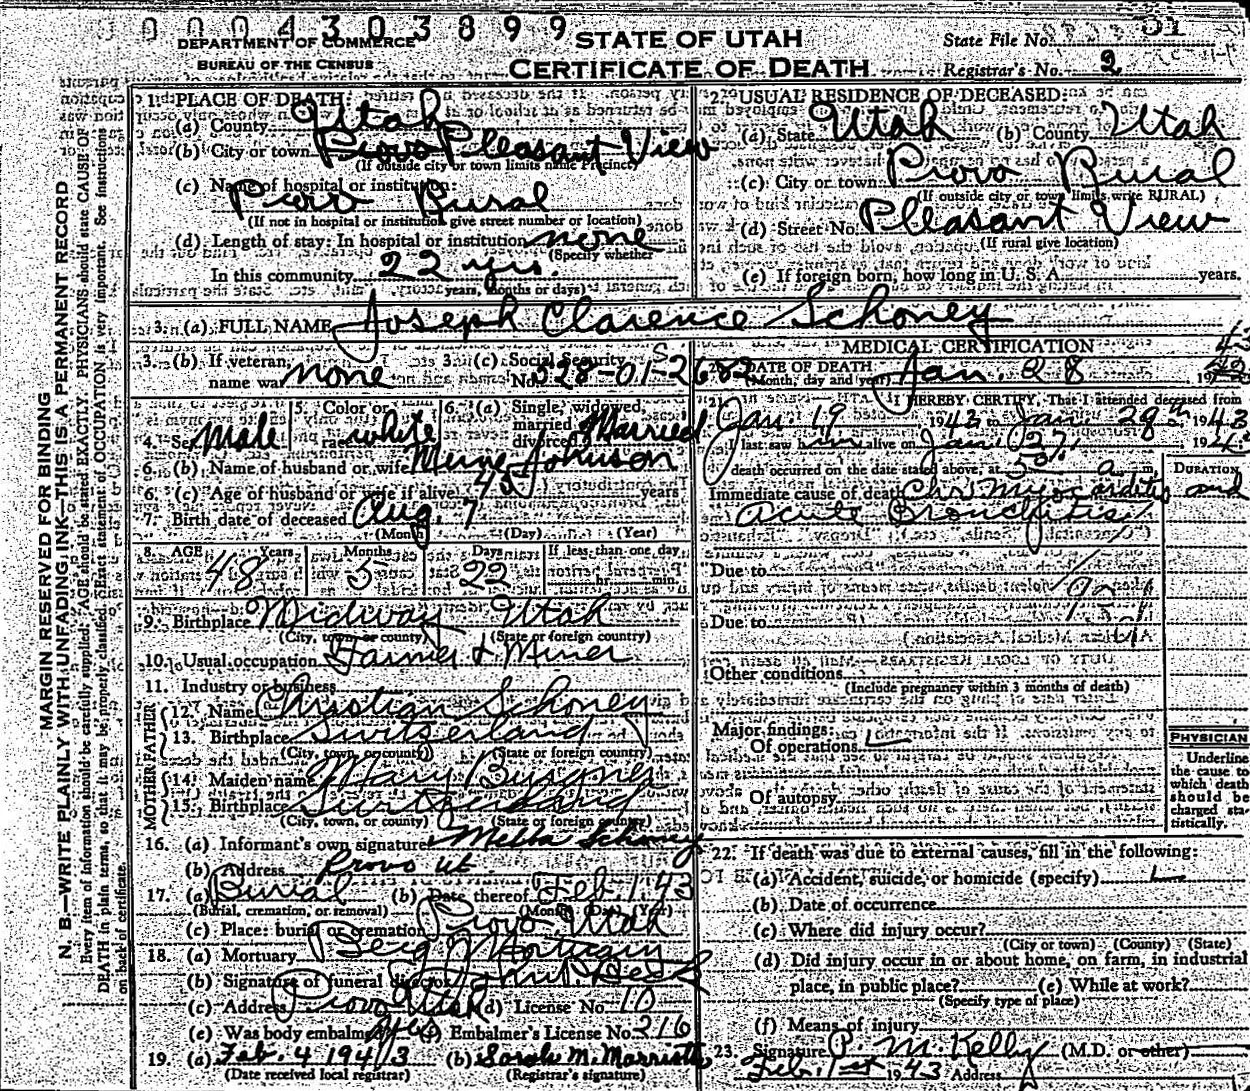 0 0 0 4 3 0 3 8 9 9
DEPARTMENT OF COMMERCE
BUREAU OF THE CENSUS
STATE OF UTAH
CERTIFICATE OF DEATH
State File No.
Registrar's No. 2
MARGIN RESERVED FOR BINDING
N. B.—WRITE PLAINLY WITH UNFADING INK—THIS IS A PERMANENT RECORD
Every item of information should be carefully supplied. AGE should be stated EXACTLY. PHYSICIANS should state CAUSE OF
DEATH in plain terms, so that it may be properly classified. Exact statement of OCCUPATION is very important. See instructions
on back of certificate.
1. PLACE OF DEATH:
(a) County Utah
(b) City or town Provo Pleasant View
(If outside city or town limits name Precinct)
(c) Name of hospital or institution:
Rural
(If not in hospital or institution give street number or location)
(d) Length of stay: In hospital or institution none
(Specify whether
In this community 22 yrs.
years, months or days)
2. USUAL RESIDENCE OF DECEASED:
(a) State Utah (b) County Utah
(c) City or town Provo Rural
(If outside city or town limits write RURAL)
(d) Street No. Pleasant View
(If rural give location)
(e) If foreign born, how long in U. S. A. years.
3. (a) FULL NAME Joseph Clarence Schoney
3. (b) If veteran name war none
3. (c) Social Security No. 528-01-2682
4. Sex Male
5. Color or race white
6. (a) Single, widowed, married divorced Married
6. (b) Name of husband or wife Johnson
6. (c) Age of husband or wife if alive 45 years
7. Birth date of deceased Aug. 7
(Month) (Day) (Year)
8. AGE Years Months Days If less than one day
48 5 22 hr. min.
9. Birthplace Midway Utah
(City, town, or county) (State or foreign country)
10. Usual occupation Farmer & Miner
11. Industry or business
FATHER
12. Name Christian Schoney
13. Birthplace Switzerland
(City, town, or county) (State or foreign country)
MOTHER
14. Maiden name Mary
15. Birthplace Switzerland
(City, town, or county) (State or foreign country)
16. (a) Informant's own signature Melba Schoney
(b) Address Provo Ut.
17. (a) Burial (b) Date thereof Feb 1 43
(Burial, cremation, or removal) (Month) (Day) (Year)
(c) Place: burial or cremation Provo Utah
18. (a) Mortuary Berg Mortuary
(b) Signature of funeral director
(c) Address Provo Utah (d) License No. 10
(e) Was body embalmed yes (f) Embalmer's License No. 216
19. (a) Feb. 4 1943 (b) Sarah M. Marriott
(Date received local registrar) (Registrar's signature)
MEDICAL CERTIFICATION
20. DATE OF DEATH Jan. 28 1943
(Month, day and year)
21. I HEREBY CERTIFY, That I attended deceased from
Jan. 19 1943 to Jan 28th 1943
I last saw him alive on Jan. 27, 1943
death occurred on the date stated above, at a. m.
DURATION
Immediate cause of death Chr. Myocarditis and
Acute Bronchitis
Due to
Due to
Other conditions
(Include pregnancy within 3 months of death)
Major findings:
Of operations
Of autopsy
PHYSICIAN
Underline
the cause to
which death
should be
charged sta-
tistically.
22. If death was due to external causes, fill in the following:
(a) Accident, suicide, or homicide (specify)
(b) Date of occurrence
(c) Where did injury occur?
(City or town) (County) (State)
(d) Did injury occur in or about home, on farm, in industrial
place, in public place? (e) While at work?
(Specify type of place)
(f) Means of injury
23. Signature P. M. Kelly (M.D. or other)
Feb. 1st 1943 Address